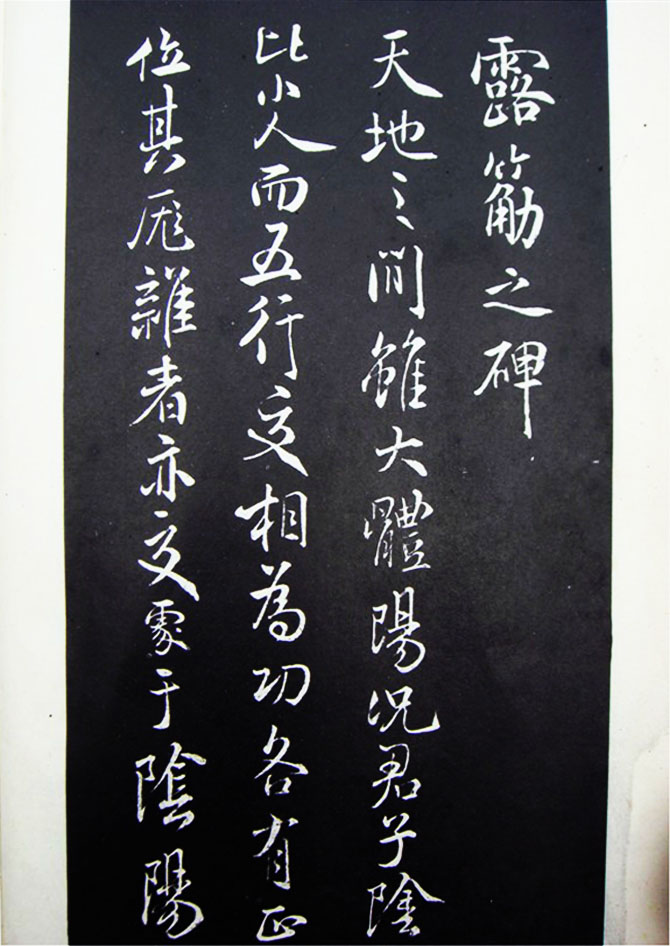 露筋之碑
天地之間雖大體陽況君子陰
比小人而五行交相為功各有正
位其厖雜者亦交處于陰陽